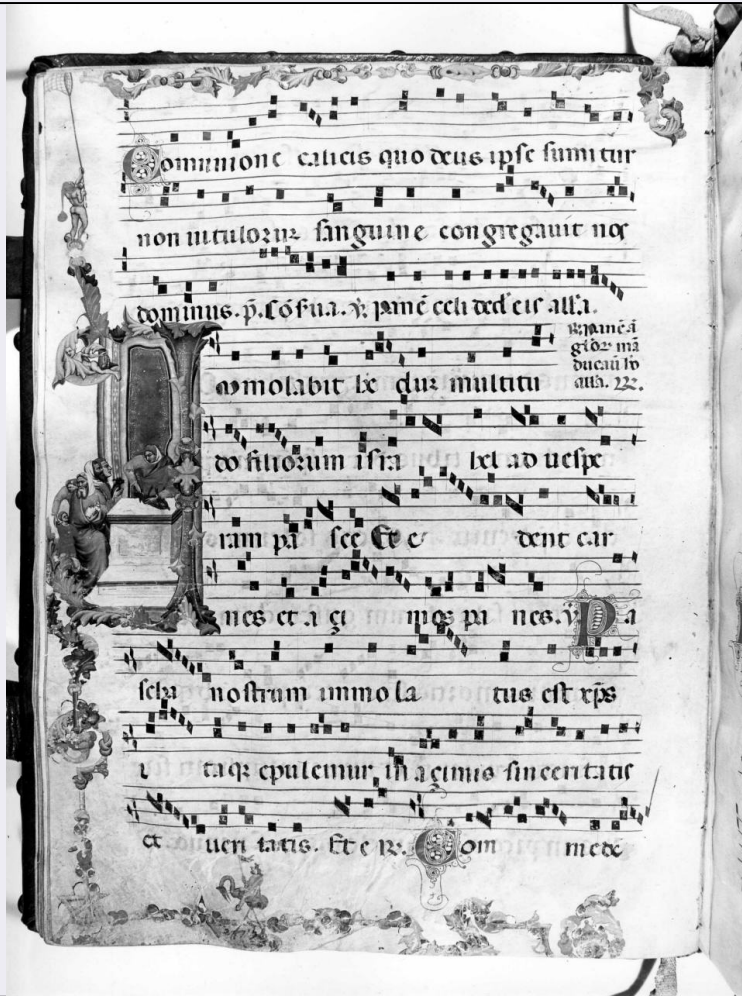 Comunione calicis quo deus ipse sumitur
non uitulorum sanguine congregauit nos
dominus. p̄. Cōfiua. ꝟ. panē celi ded̄ eis all'a.
R. panē ā
gloꝝ mā
ducauit hō
all'a.
Immolabit he dus multitu
do filiorum isra hel ad uespe
ram pa sce Et e dent car
nes et a çi mos pa nes. ꝟ. Pa
scha nostrum immola tus est xp̄s
i taq; epulemur in açimis sinceritatis
et ueri tatis. Et e Com mede